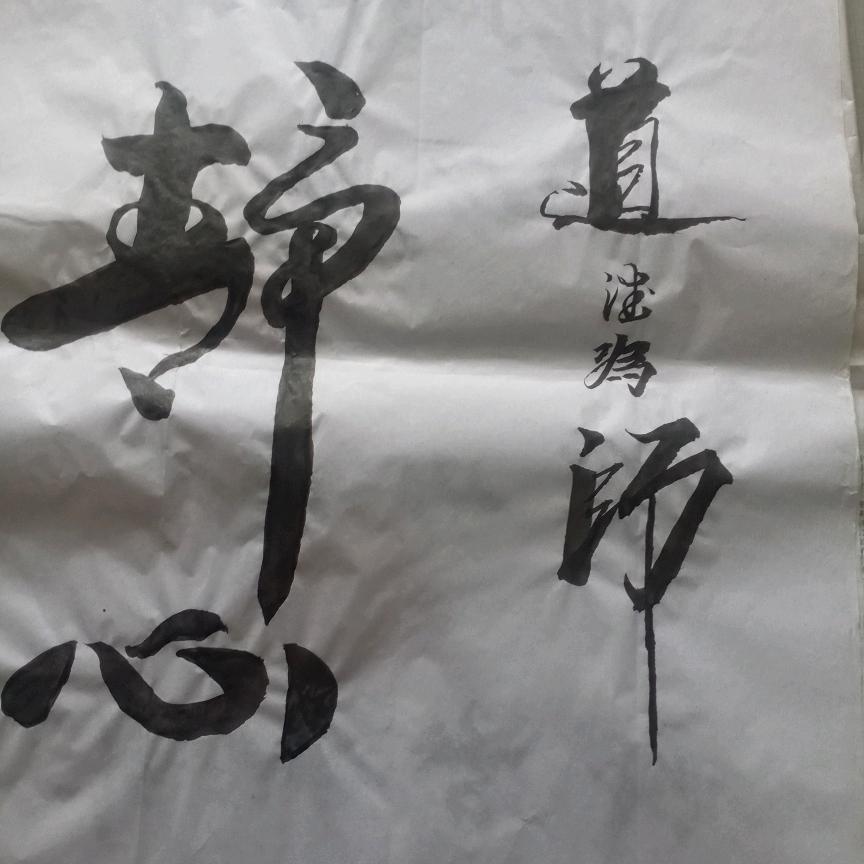 道法為師
静心